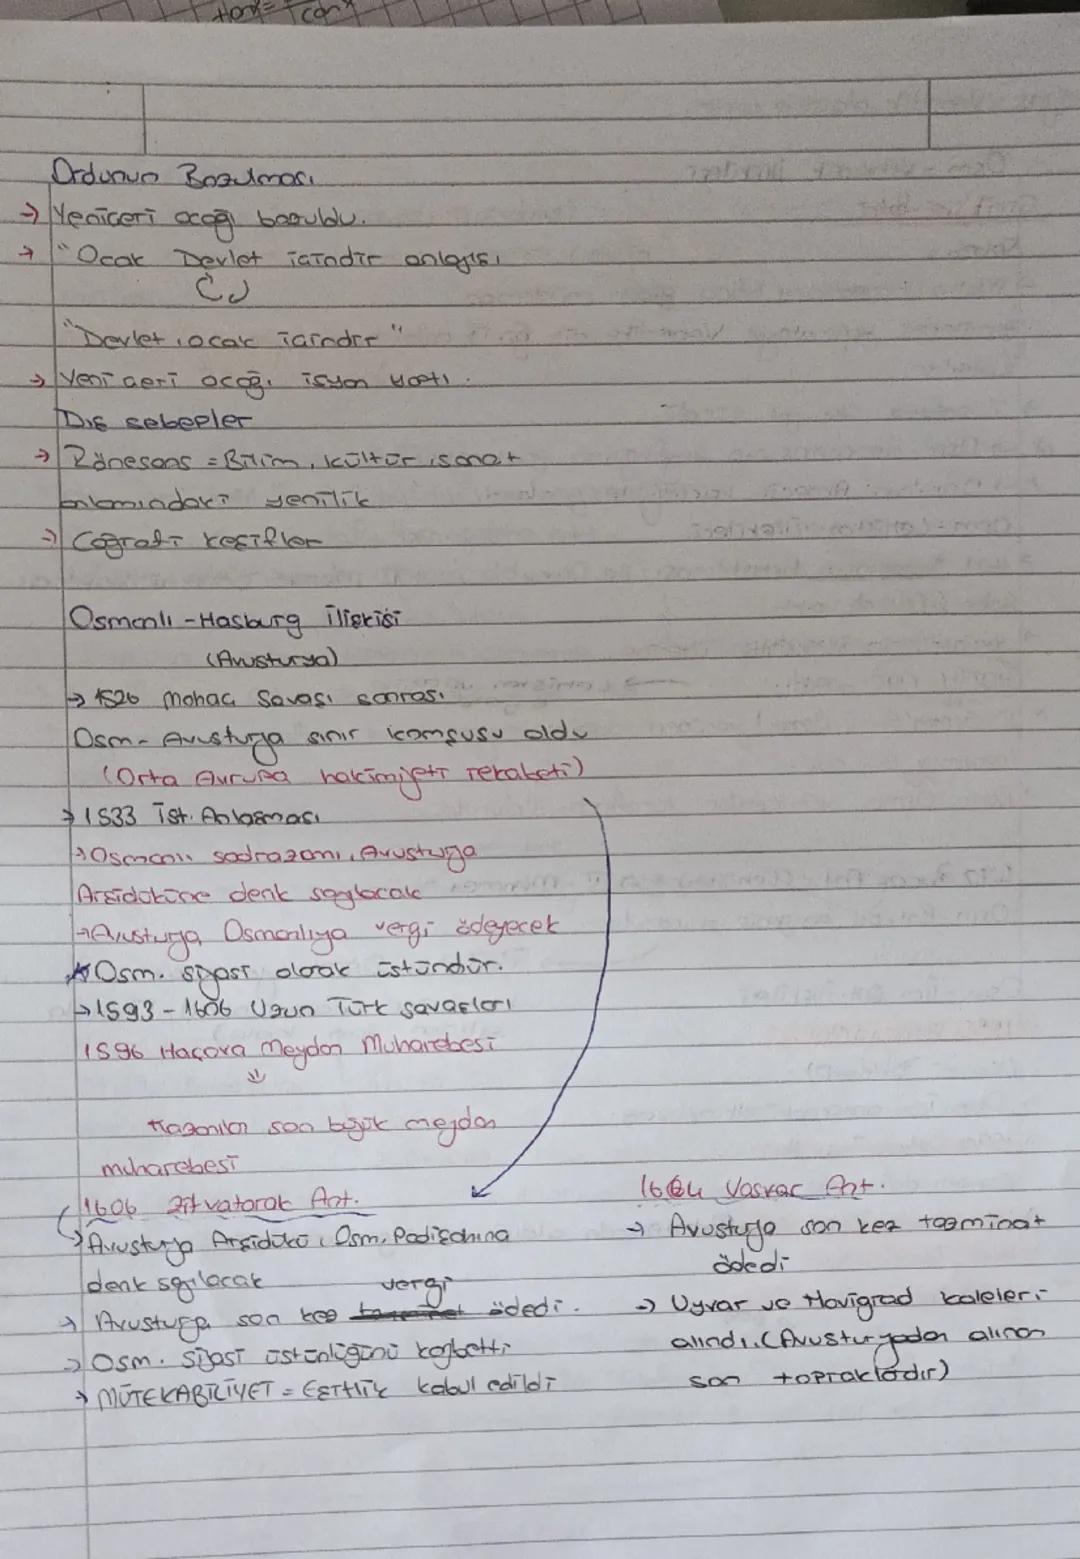 Ordunun Bozulması
→ Yeniçeri ocağı bozuldu.
→ "Ocak Devlet içindir anlayışı
"Devlet, ocak içindir"
→ Yeniçeri ocağı isyan yaptı.
Dış sebepler
→ Rönesans = Bilim, kültür, sanat
anlamındaki yenilik
→ Coğrafi keşifler
Osmanlı - Hasburg ilişkisi
(Avusturya)
→ 1526 Mohaç Savaşı sonrası
Osm - Avusturya sınır komşusu oldu
(Orta Avrupa hakimiyeti rekabeti)
→ 1533 İst. Anlaşması
→ Osmanlı sadrazamı, Avusturya
Arşidüküne denk sayılacak
→ Avusturya Osmanlıya vergi ödeyecek
☆ Osm. siyasi olarak üstündür.
→ 1593 - 1606 Uzun Türk savaşları
1596 Haçova Meydan Muharebesi
⇓
Kazanılan son büyük meydan
muharebesi
1606 Zitvatorok Ant.
→ Avusturya Arşidükü, Osm. Padişahına
denk sayılacak
→ Avusturya son kez vergi ödedi.
→ Osm. siyasi üstünlüğünü kaybetti
→ MÜTEKABİLİYET = Eşitlik kabul edildi
1664 Vasvar Ant.
→ Avusturya son kez tazminat
ödedi
→ Uyvar ve Novigrad kaleleri
alındı. (Avusturyadan alınan
son topraklardır)